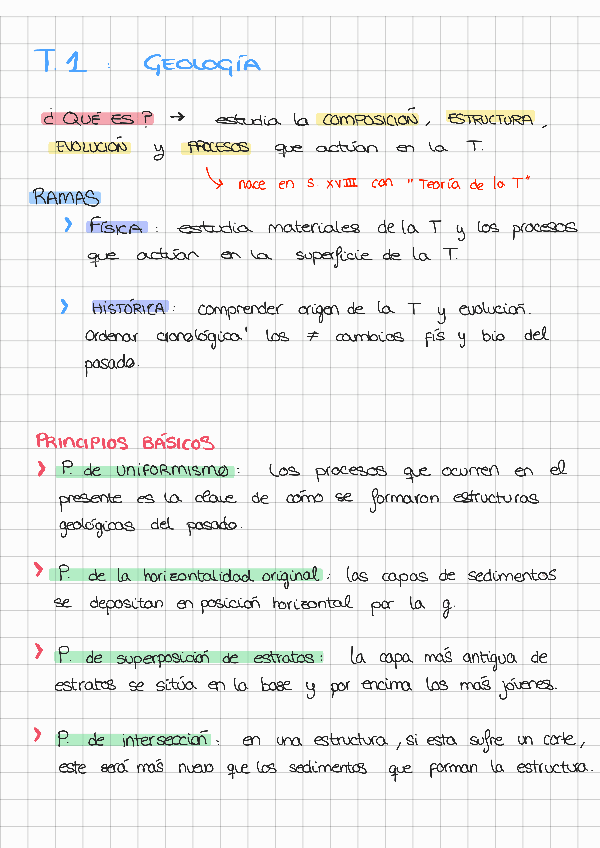 T.1 : GEOLOGÍA
¿ QUÉ ES ? → estudia la COMPOSICIÓN, ESTRUCTURA,
EVOLUCIÓN y PROCESOS que actúan en la T.
nace en S XVIII con "Teoría de la T"
RAMAS
FÍSICA : estudia materiales de la T y los procesos
que actúan en la superficie de la T.
HISTÓRICA : comprender origen de la T y evolución.
Ordenar cronológica' los ≠ cambios fís y bio del
pasado.
PRINCIPIOS BÁSICOS
P. de UNIFORMISMO : Los procesos que ocurren en el
presente es la clave de cómo se formaron estructuras
geológicas del pasado.
P. de la horizontalidad original : las capas de sedimentos
se depositan en posición horizontal por la g.
P. de superposición de estratos : la capa más antigua de
estratos se sitúa en la base y por encima las más jóvenes.
P. de intersección : en una estructura, si esta sufre un corte,
este será más nuevo que los sedimentos que forman la estructura.